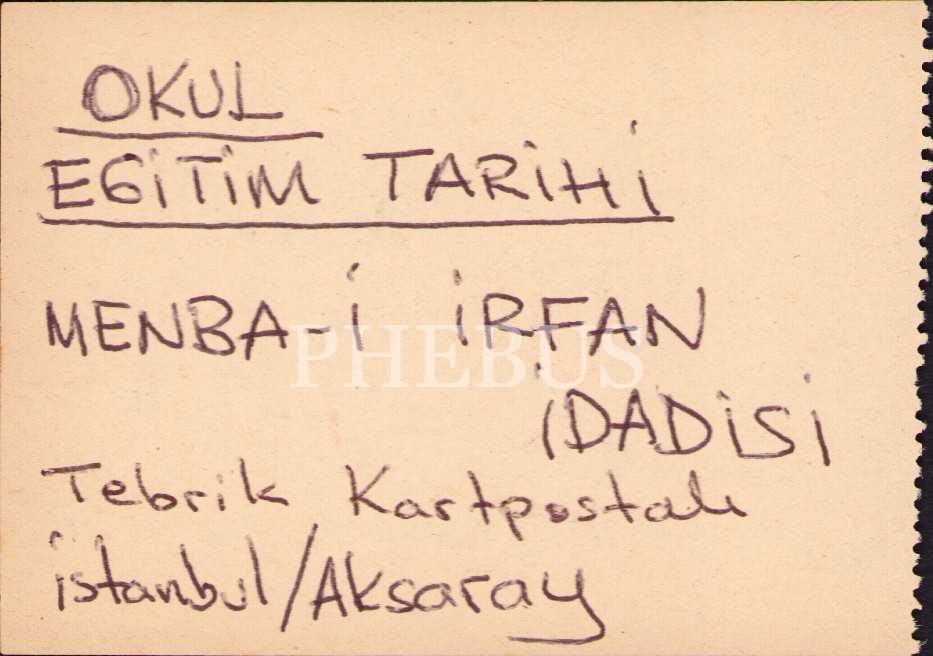 OKUL
EGİTİM TARİHİ
MENBA-İ İRFAN
PHEBUS
İDADİSİ
Tebrik Kartpostalı
İstanbul/Aksaray